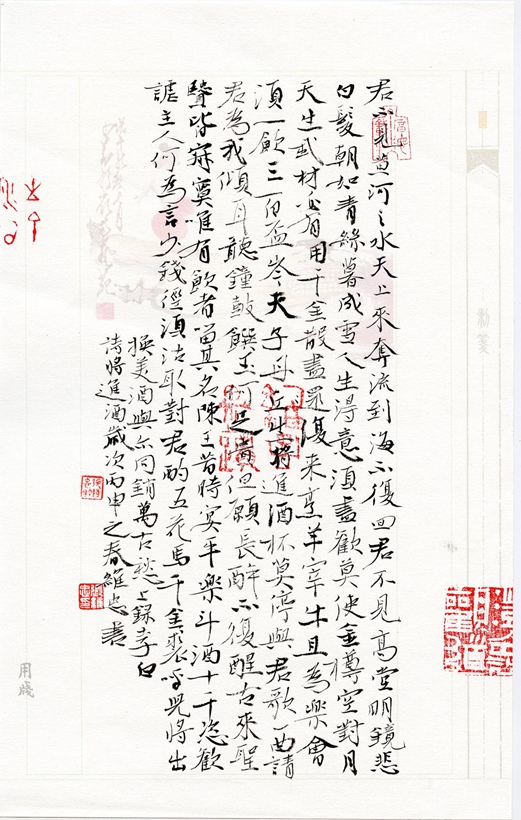 君不見黄河之水天上來奔流到海不復回君不見高堂明鏡悲
白髮朝如青絲暮成雪人生得意須盡歡莫使金樽空對月
天生我材必有用千金散盡還復來烹羊宰牛且為樂會
須一飲三百盃岑夫子丹丘生將進酒杯莫停與君歌一曲請
君為我傾耳聽鐘鼓饌玉何足貴但願長醉不復醒古來聖
賢皆寂寞唯有飲者留其名陳王昔時宴平樂斗酒十千恣歡
謔主人何為言少錢徑須沽取對君酌五花馬千金裘呼兒將出
換美酒與尔同銷萬古愁上錄李白
詩將進酒歲次丙申之春維忠書
用箋